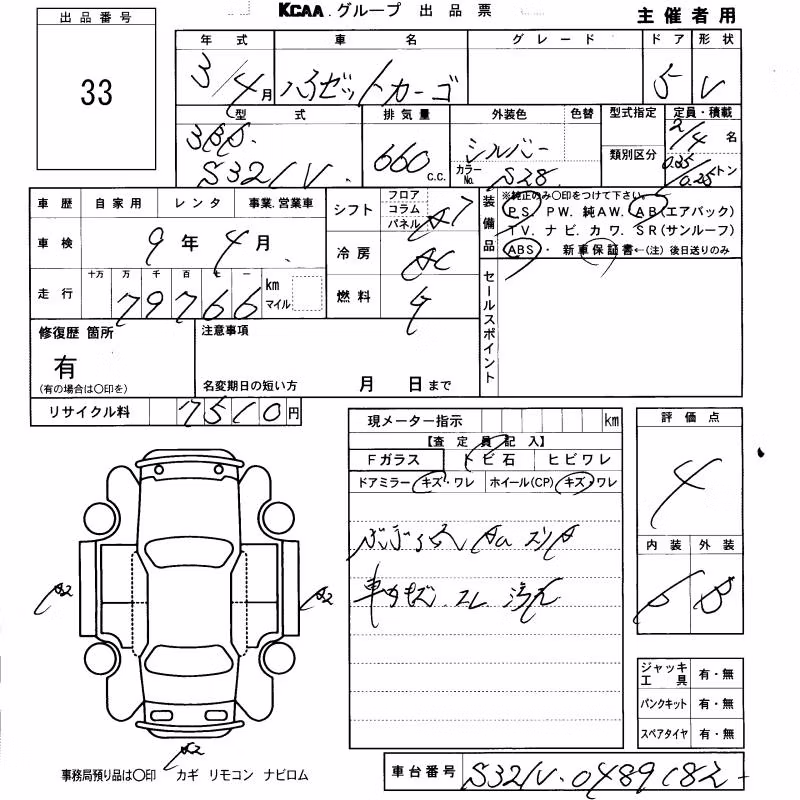 KCAA.グループ 出品票
主催者用
出品番号
33
年式 車名 グレード ドア 形状
3/4月 ハイゼットカーゴ 5 V
型式 排気量 外装色 色替 型式指定 定員・積載
3BD- 660 c.c. シルバー 2/4名
S321V カラーNo. S28 類別区分 0.35/0.25トン
車歴 自家用 レンタ 事業.営業車
シフト フロア コラム パネル A7
装備品 ※純正のみ〇印をつけて下さい。
PS. PW. 純AW. AB(エアバック)
TV. ナビ. カワ. SR(サンルーフ)
ABS・ 新車保証書←(注) 後日送りのみ
車検 9年4月
冷房 AC
走行 十万 万 千 百 七 一 km マイル
79766
燃料 ｶﾞ
セールスポイント
修復歴 箇所
有
(有の場合は〇印を)
注意事項
名変期日の短い方 月 日まで
リサイクル料 7510円
現メーター指示 km
【査定員記入】
Fガラス トビ石 ヒビワレ
ドアミラー キズ・ワレ ホイール(CP) キズ・ワレ
評価点
4
内装 外装
B
A2
A2
A2
ジャッキ工具 有・無
パンクキット 有・無
スペアタイヤ 有・無
事務局預り品は〇印 カギ リモコン ナビロム
車台番号 S321V-0489182-